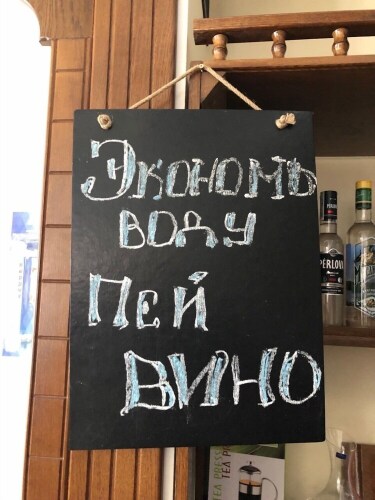 Экономь
воду
пей
вино
PERLOVA
TEA PRESS
TEA PR